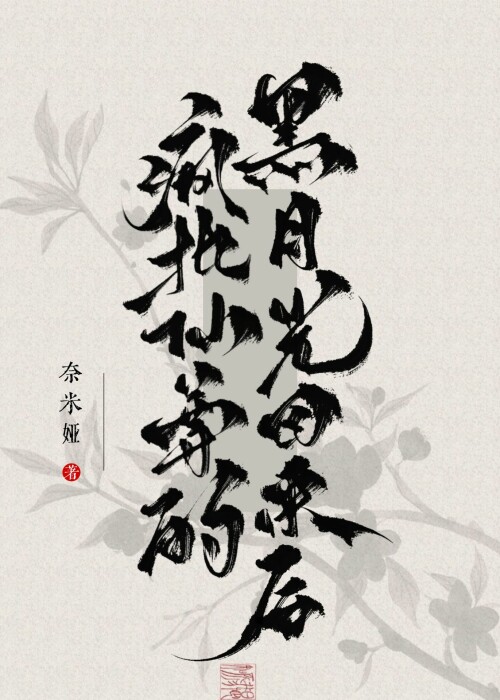 疯批仙尊的
黑月光回来后
奈米娅 著